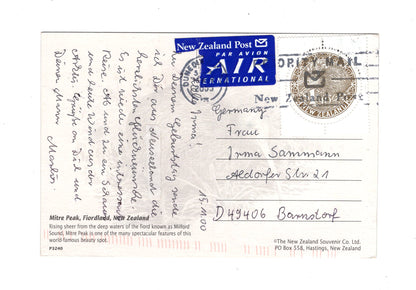 New Zealand Post
PAR AVION
AIR
INTERNATIONAL
PRIORITY MAIL
New Zealand Post
NEW ZEALAND
Germany
Frau
Irma Sammann
Aldorfer Str 21
D49406 Barnstorf
15.11.00
Irma!
Deinem Geburtstag sende
ich Dir aus Neuseeland die
herzlichsten Glückwünsche.
Es ist
eine interessante
Reise. Ab und zu ein Schauer
und heute Wind aus der
Dir und
Deinen Mann
Mitre Peak, Fiordland, New Zealand
Rising sheer from the deep waters of the fiord known as Milford
Sound, Mitre Peak is one of the many spectacular features of this
world-famous beauty spot.
P3240
©The New Zealand Souvenir Co. Ltd.
PO Box 558, Hastings, New Zealand